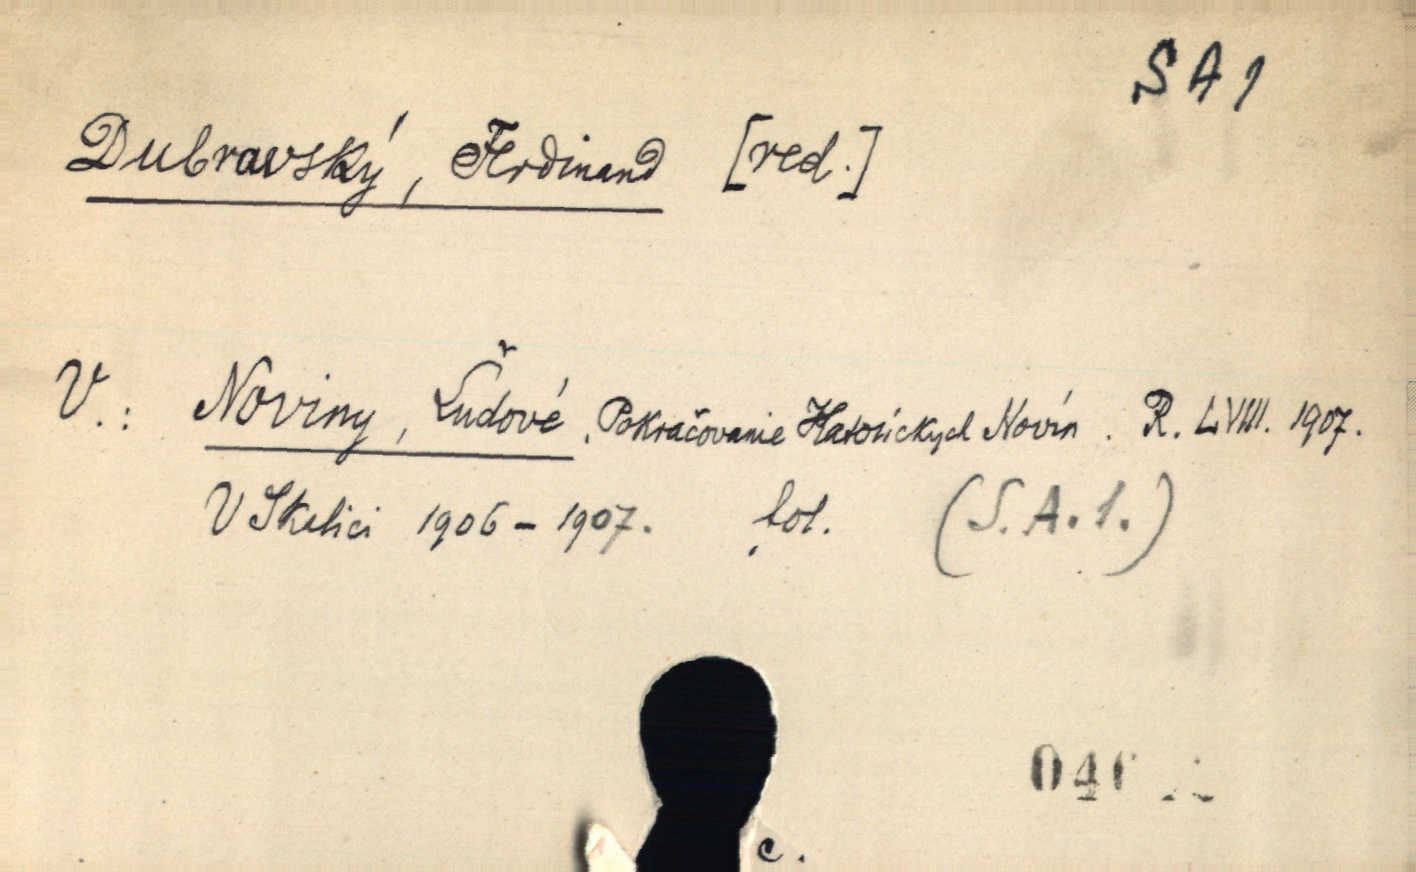 SA1
Dubravský, Ferdinand [red.]
V.: Noviny, Ľudové, Pokračovanie Katolíckych Novín. R. LVIII. 1907.
V Skalici 1906-1907. fol. (S.A.1.)
c.